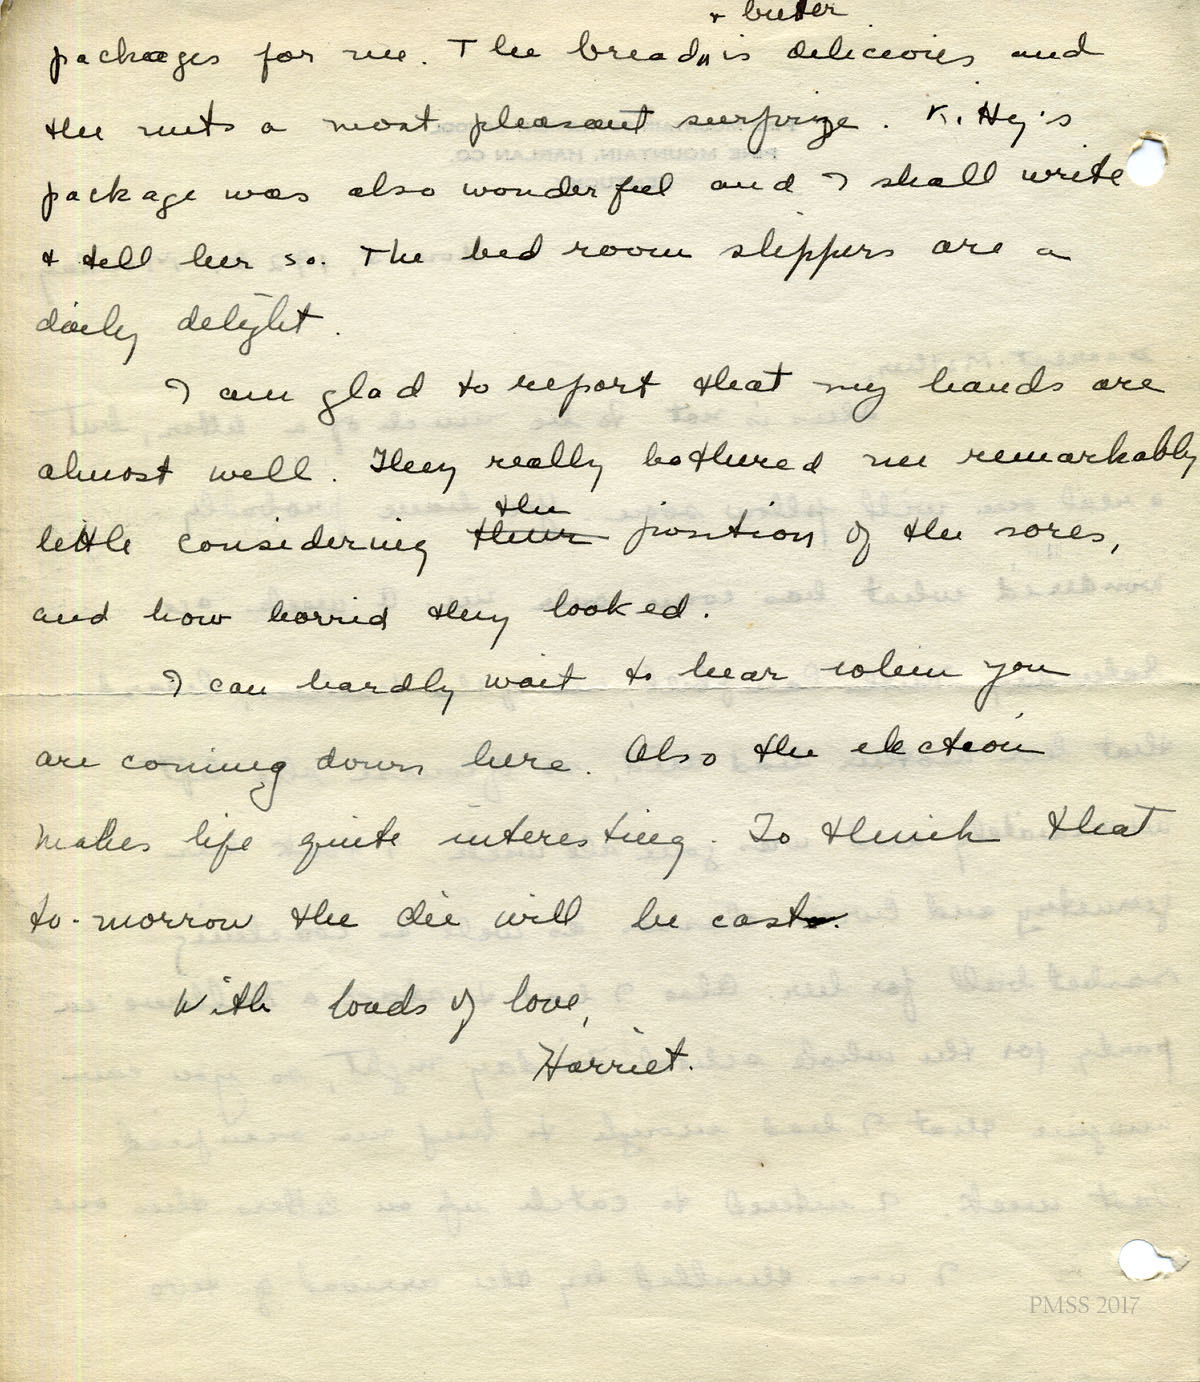 + butter
packages for me. The bread is delicious and
the nuts a most pleasant surprize. Kitty's
package was also wonderful and I shall write
+ tell her so. The bed room slippers are a
daily delight.
I am glad to report that my hands are
almost well. They really bothered me remarkably
the
little considering their position of the sores,
and how horrid they looked.
I can hardly wait to hear when you
are coming down here. Also the election
makes life quite interesting. To think that
to-morrow the die will be cast.
With loads of love,
Harriet.
PMSS 2017